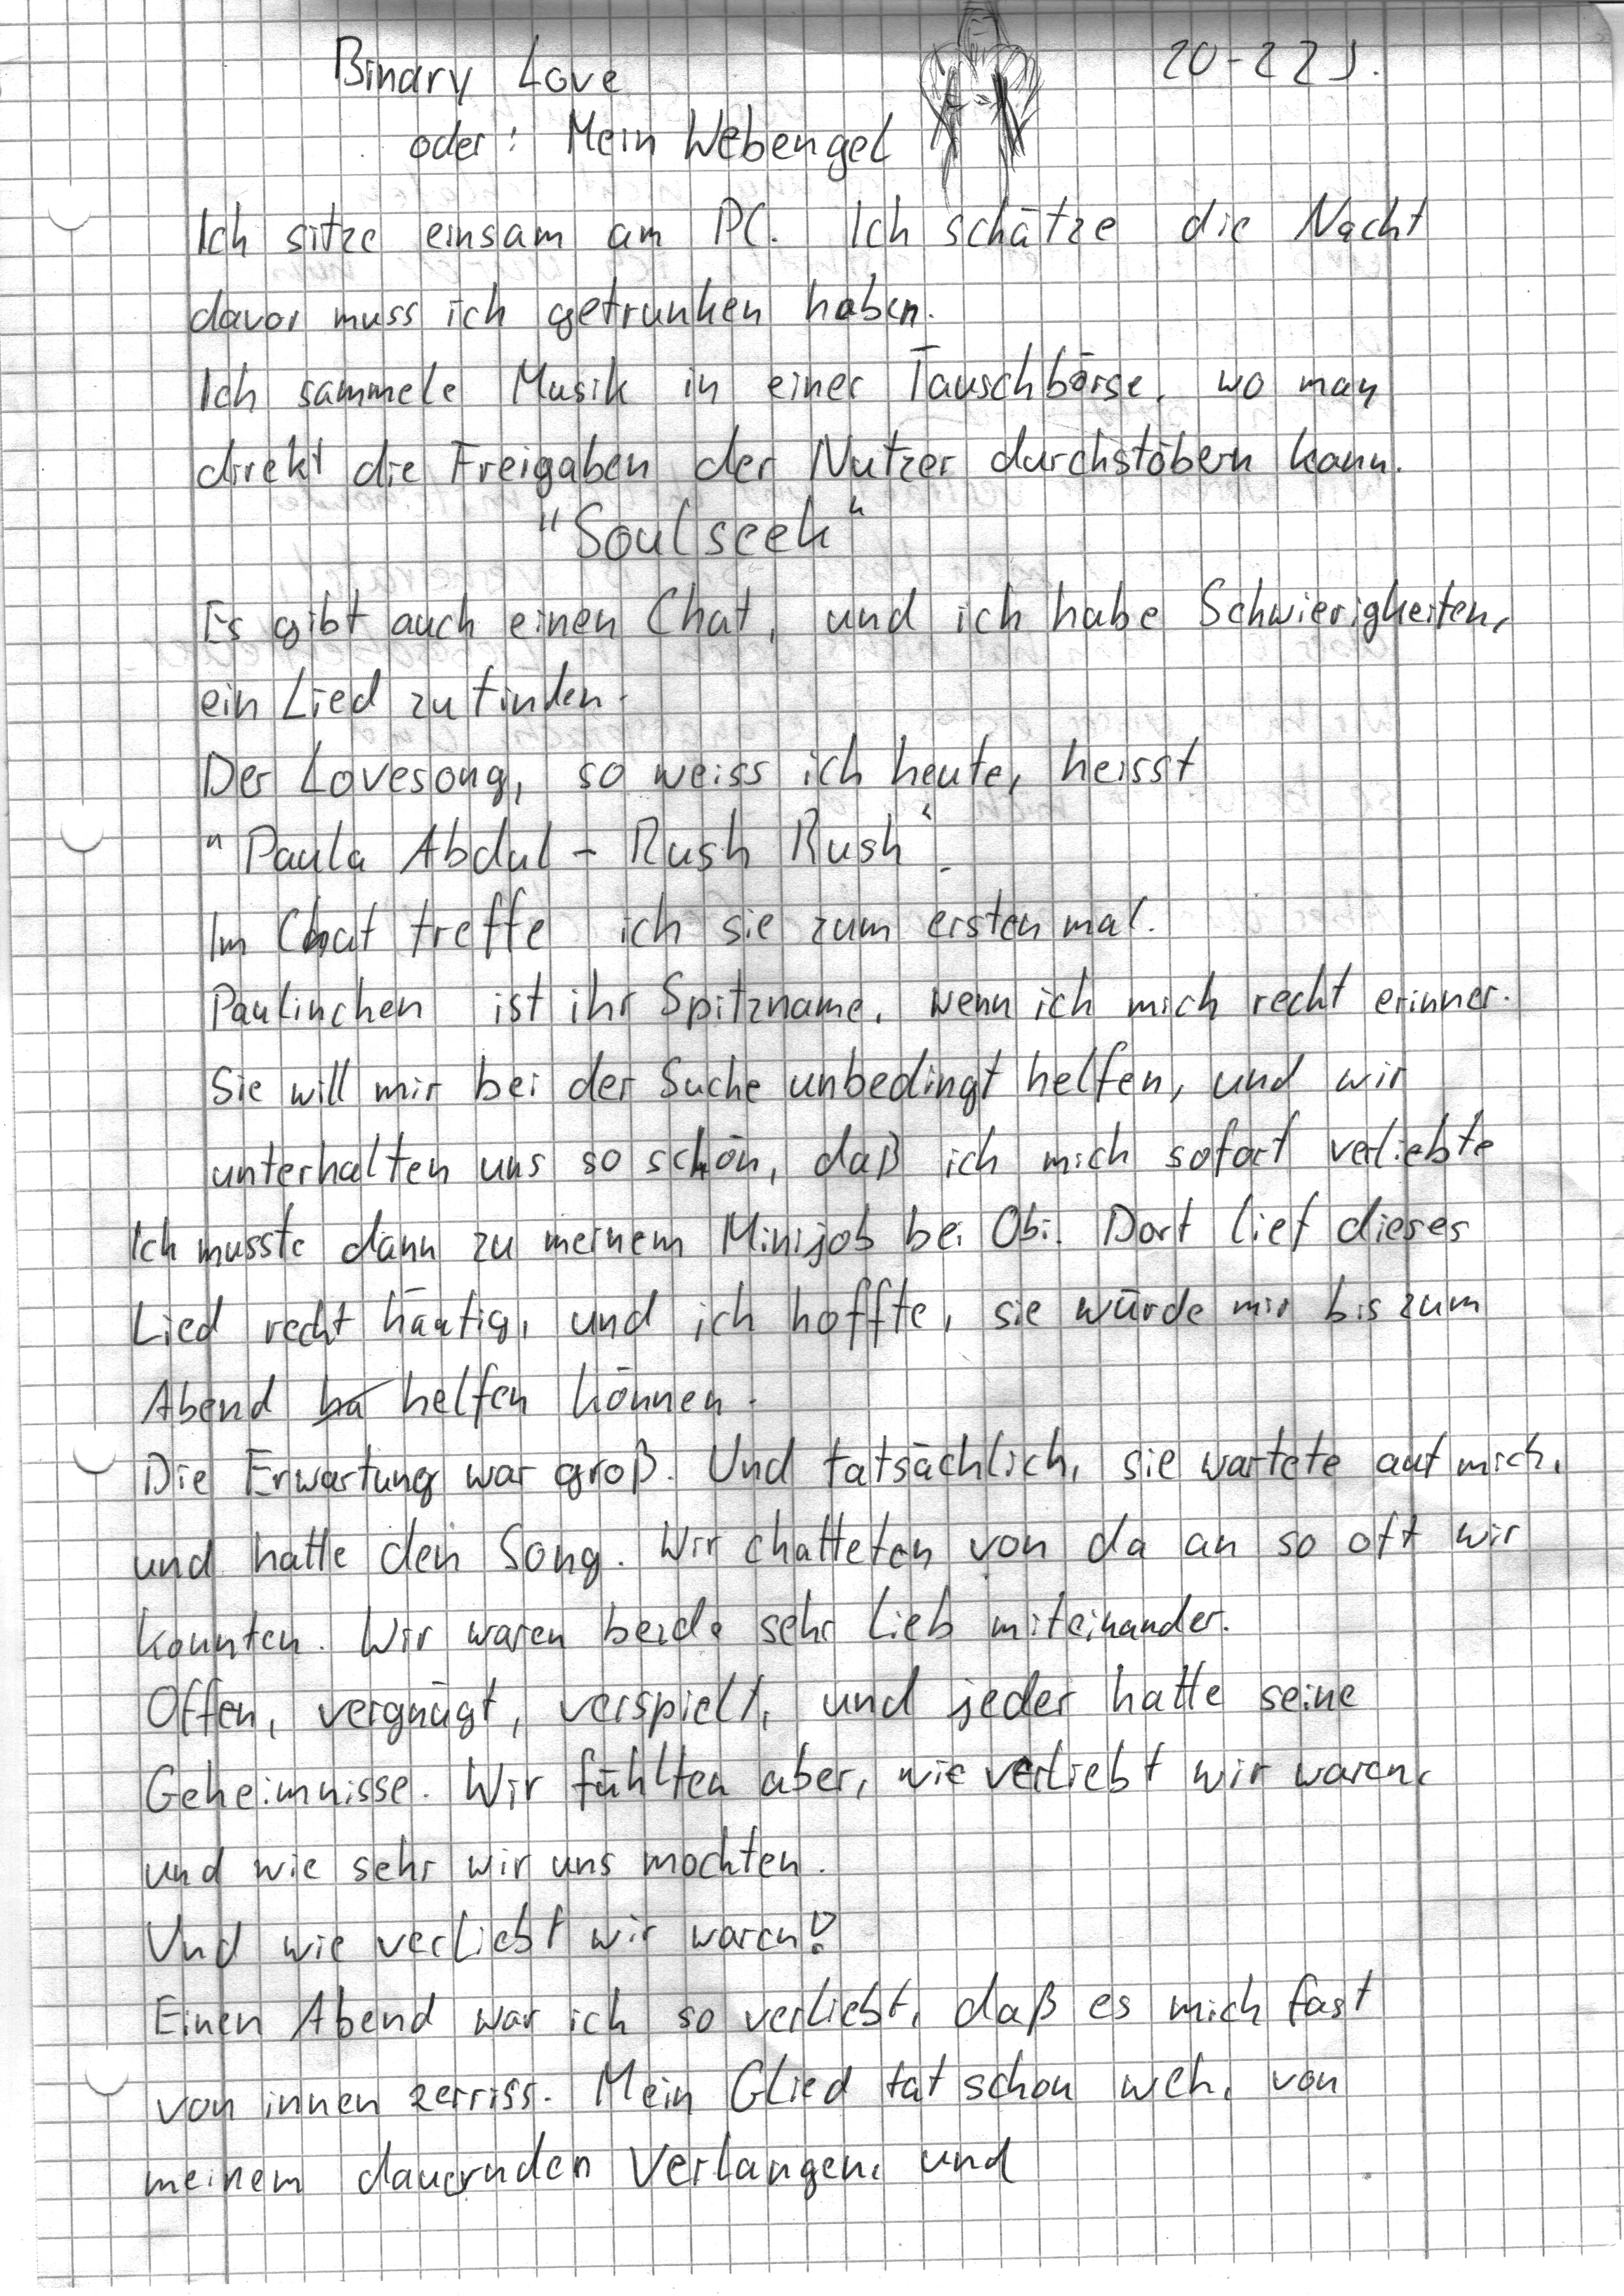 Binary Love 20-22 J.
oder: Mein Webengel
Ich sitze einsam am PC. Ich schätze die Nacht
davor muss ich getrunken haben.
Ich sammele Musik in einer Tauschbörse, wo man
direkt die Freigaben der Nutzer durchstöbern kann.
"Soulseek"
Es gibt auch einen Chat, und ich habe Schwierigkeiten,
ein Lied zu finden.
Der Lovesong, so weiss ich heute, heisst
"Paula Abdul - Rush Rush".
Im Chat treffe ich sie zum ersten mal.
Paulinchen ist ihr Spitzname, wenn ich mich recht erinner.
Sie will mir bei der Suche unbedingt helfen, und wir
unterhalten uns so schön, daß ich mich sofort verliebte
Ich musste dann zu meinem Minijob bei Obi. Dort lief dieses
Lied recht häufig, und ich hoffte, sie würde mir bis zum
Abend ha helfen können.
Die Erwartung war groß. Und tatsächlich, sie wartete auf mich,
und hatte den Song. Wir chatteten von da an so oft wir
konnten. Wir waren beide sehr lieb miteinander.
Offen, vergnügt, verspielt, und jeder hatte seine
Geheimnisse. Wir fühlten aber, wie verliebt wir waren,
und wie sehr wir uns mochten.
Und wie verliebt wir waren!
Einen Abend war ich so verliebt, daß es mich fast
von innen zerriss. Mein Glied tat schon weh, von
meinem dauernden Verlangen, und